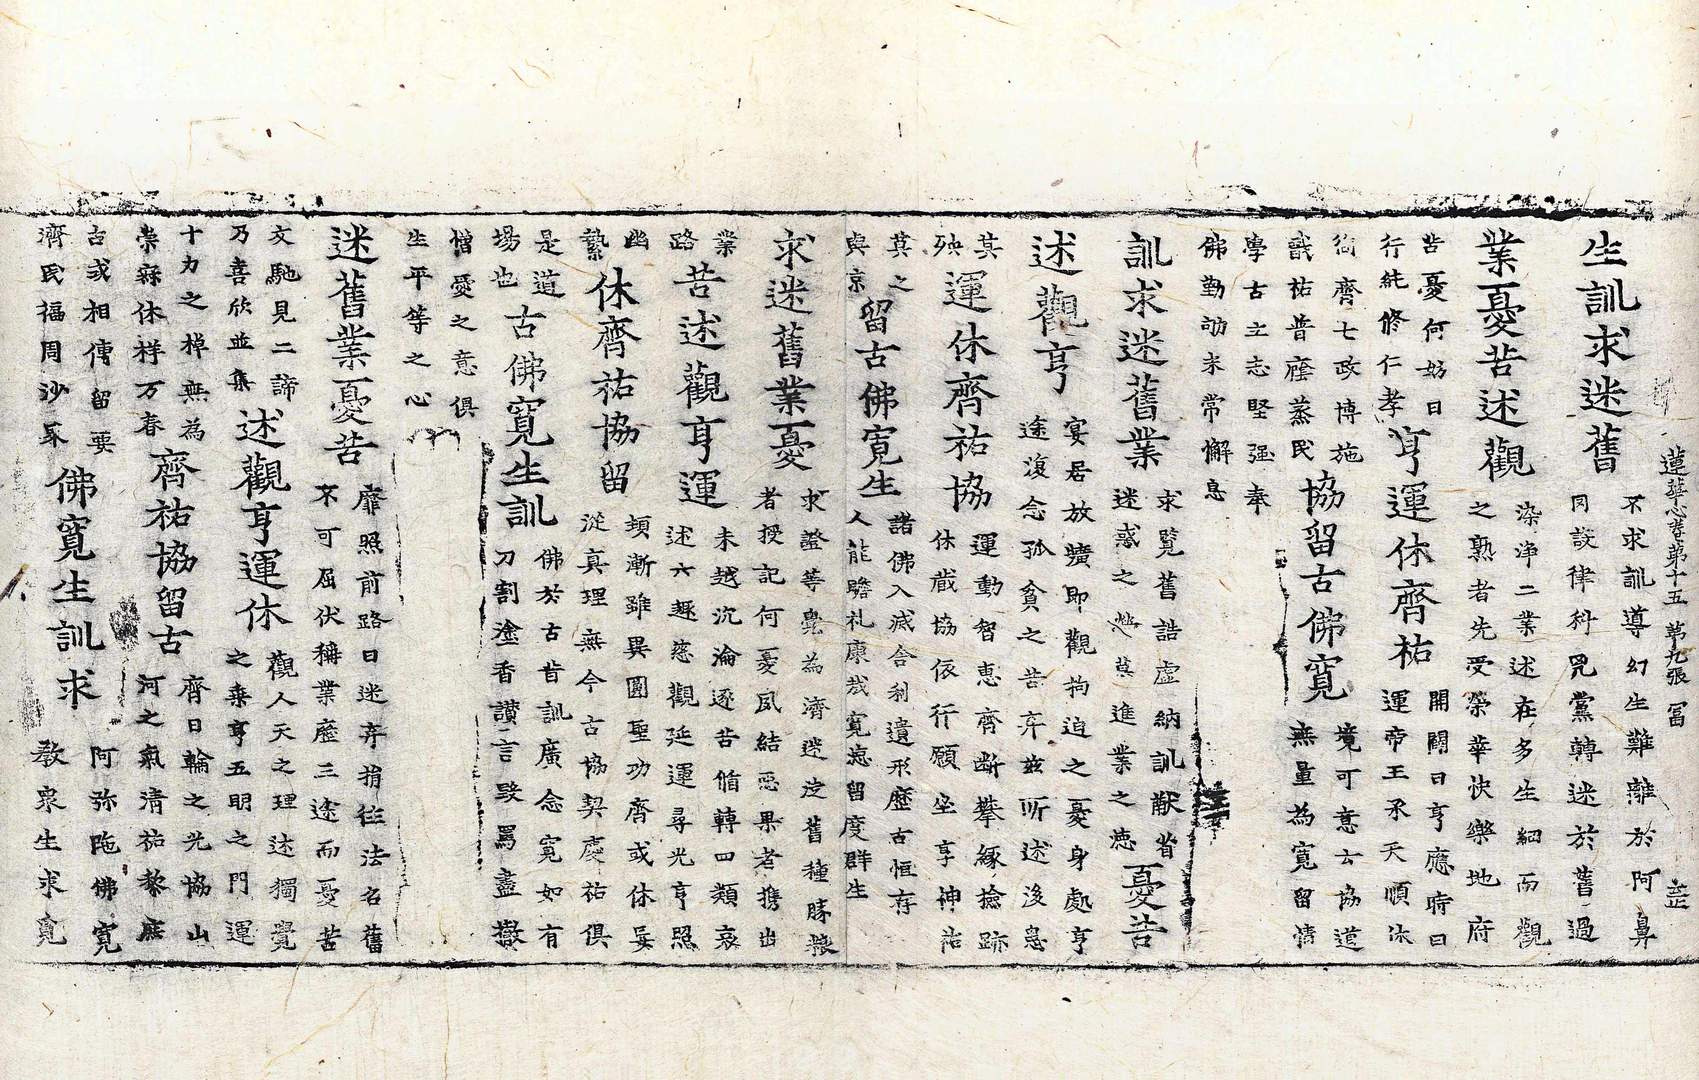 蓮華心卷第十五 第九張 冨
生訓求迷舊
不求訓導幻生難離於阿鼻
同談律科咒黨轉迷於舊過
業憂苦述觀
染淨二業述在多生細而觀
之熟者先受榮華快樂地府
苦憂何妨日
行純修仁孝
亨運休齊祐
開闢日亨應時日
運帝王承天順休
齊七政博施
識祐普廕蒸民
協留古佛寬
境可意云協道
無量為寬留情
學古立志堅强奉
佛勤劬未常懈怠
訓求迷舊業
求覽舊誥虛納訓猷省
迷惑之 莫進業之德
憂苦
述觀亨
宴居放曠即觀拘迫之憂身處亨
途復念孤貧之苦弃茲所述後急
其
殃
運休齊祐協
運動智惠齊断攀緣捻跡
休戢協依行願坐享神祐
莫之
與京
留古佛寬生
諸佛入滅舍利遺形歷古恒存
人能瞻礼康哉寬慈留度群生
求迷舊業憂
求證等覺為濟迷途舊種勝族
者授記何憂夙結惡果者携出
業
路
苦述觀亨運
未越沉淪逐苦循轉四類哀
述六趣慈觀延運尋光亨照
幽
贄
休齊祐協留
頓漸雖異圓聖功齊或休妄
從真理無今古協契慶祐俱
是道
場也
古佛寬生訓
佛於古昔訓廣念寬如有
刀割塗香讚言毀罵盡撤
憎愛之意俱
生平等之心
迷舊業憂苦
靡照前路曰迷弃捐從法名舊
不可屈伏稱業歷三途而憂苦
文馳見二諦
乃喜欣並集
述觀亨運休
觀人天之理述獨覺
之乘亨五明之門運
十力之棹無為
崇寐休祥万春
齊祐協留古
齊日輪之光協山
河之氣清祐黎庶
古或相傳留要
濟民福周沙界
佛寬生訓求
阿弥陁佛寬
教衆生求覓